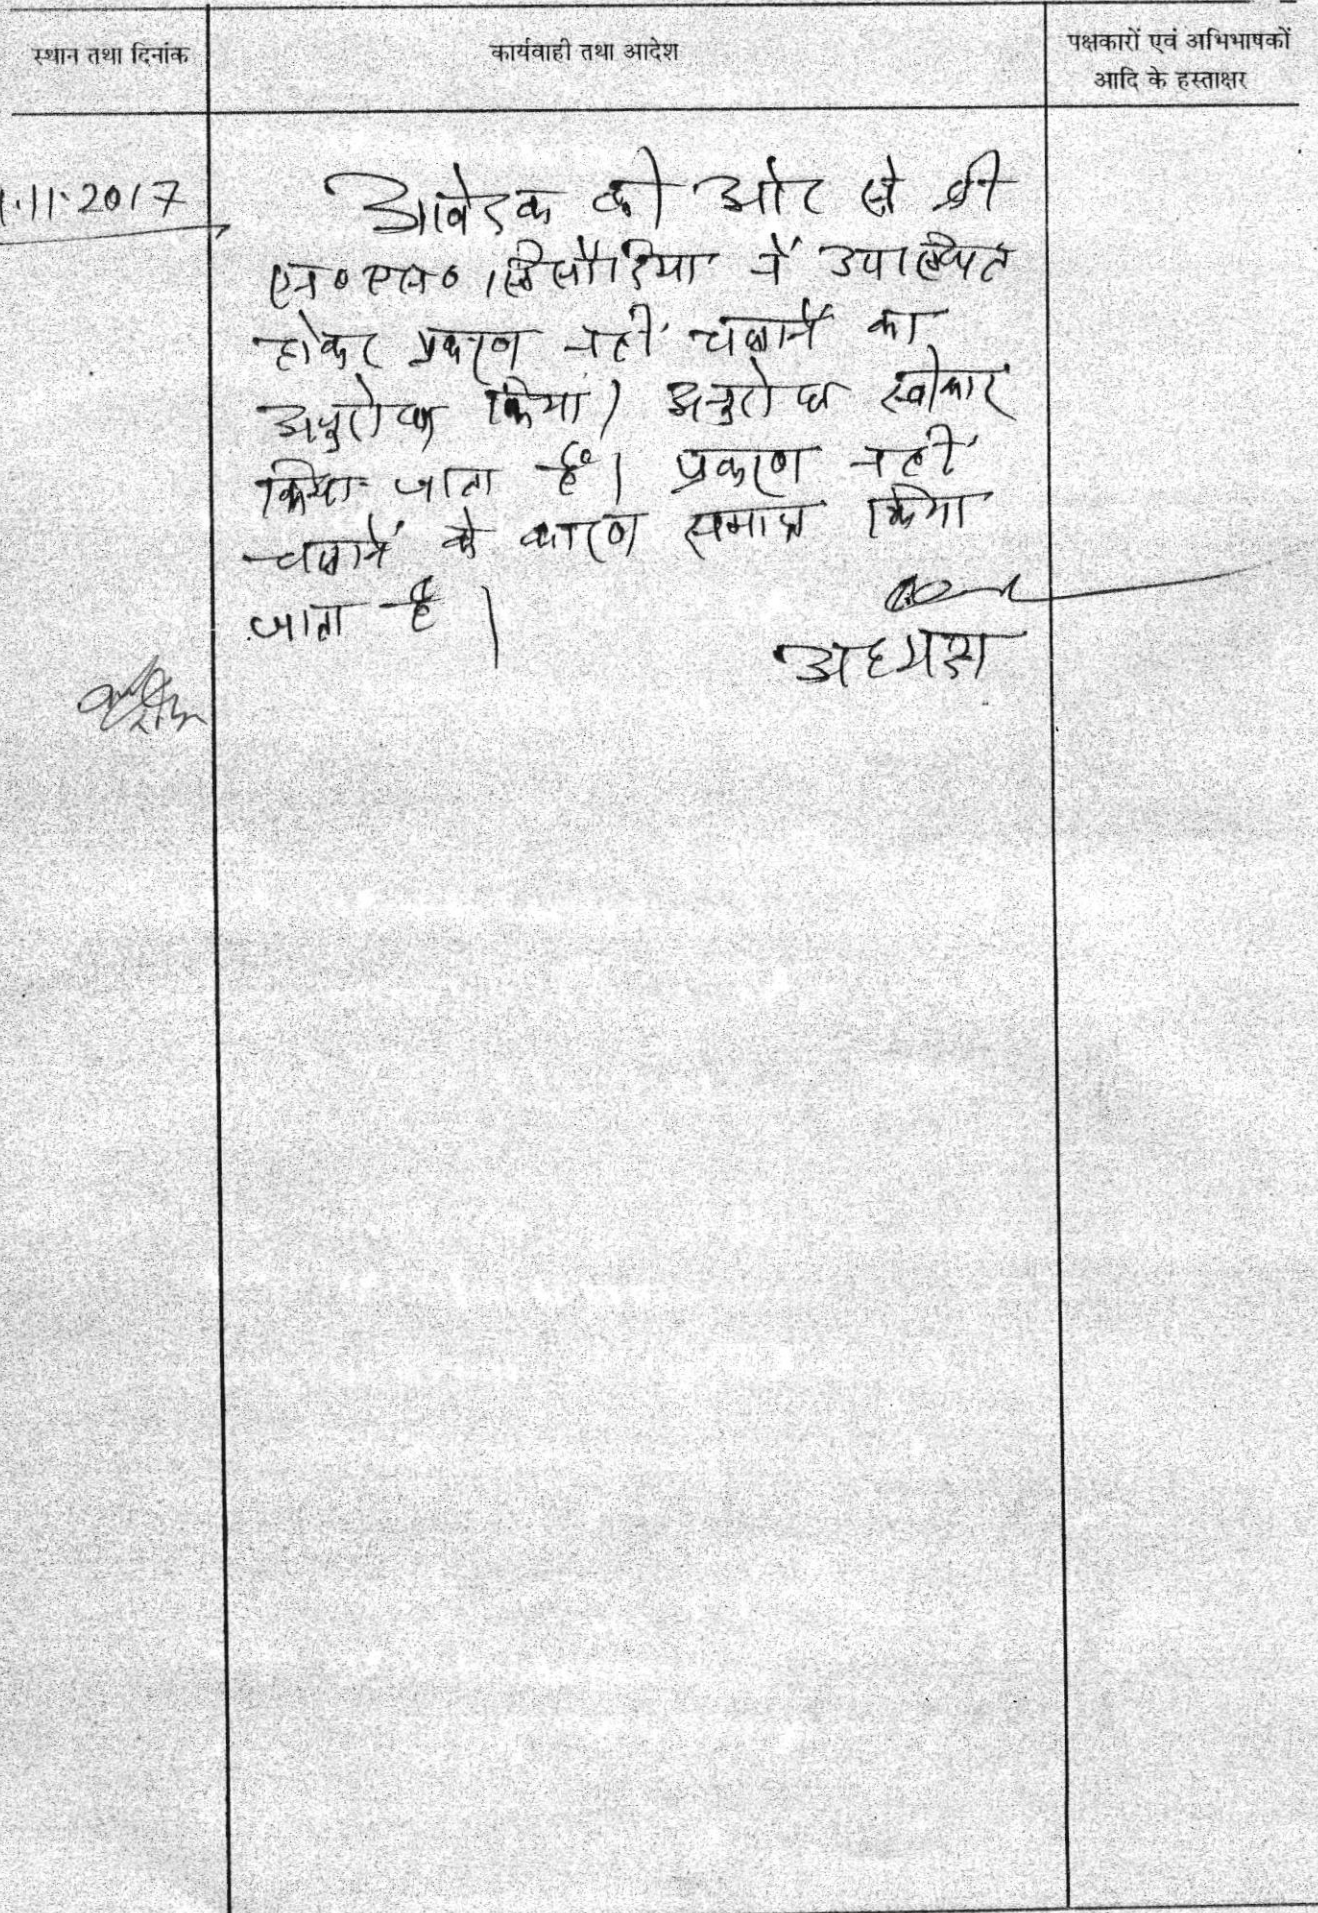 स्थान तथा दिनांक
कार्यवाही तथा आदेश
पक्षकारों एवं अभिभाषकों
आदि के हस्ताक्षर
.11.2017
आवेदक की ओर से श्री
एन० एल० सिसौदिया ने उपस्थित
होकर प्रकरण नहीं चलाने का
अनुरोध किया। अनुरोध स्वीकार
किया जाता है। प्रकरण नहीं
चलाने के कारण समाप्त किया
जाता है।
अध्यक्ष